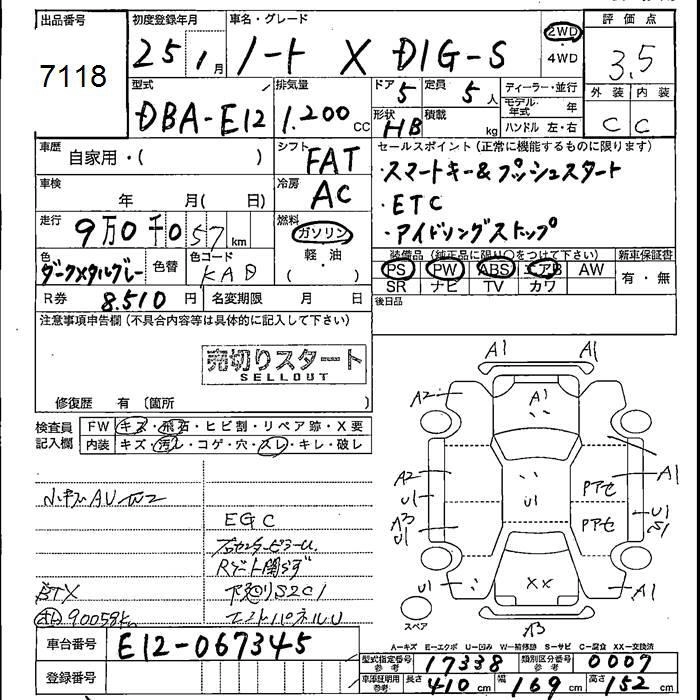 出品番号 初度登録年月 車名・グレード 2WD・4WD 評価点
7118 25 1月 ノート X DIG-S 3.5
型式 排気量 ドア 5 定員 5人 ディーラー・並行 外装 内装
DBA-E12 1.200 CC 形状 HB 積載 kg モデル年式 年 C C
ハンドル 左・右
車歴 自家用・( ) シフト FAT セールスポイント (正常に機能するものに限ります)
車検 年 月( 日) 冷房 AC ・スマートキー&プッシュスタート
・ETC
走行 9万0千057km 燃料 ガソリン ・アイドリングストップ
軽・油
( )
色 ダークメタルグレー 色替 色コード KAD
装備品 (純正品に限り○をつけて下さい) 新車保証書
PS PW ABS エアB AW 有・無
SR ナビ TV カワ
R券 8.510円 名変期限 月 日 後日品
注意事項申告欄(不具合内容等は具体的に記入して下さい)
売切りスタート
SELLOUT
修復歴 有 〔箇所 〕
検査員記入欄 FW キズ・飛石・ヒビ割・リペア跡・X要
内装 キズ・汚レ・コゲ・穴・スレ・キレ・破レ
小キズAU W2
EGC
Rゲート開ズ
下廻りS2C1
90059k
エンドパネルU
A1 A1
A2 A1
A2 U1 U1 Pアセ A1
A3 U1 Pアセ U1 S1
U1 XX A1
スペア
A-キズ E-エクボ U-凹み W-補修跡 S-サビ C-腐食 XX-交換済
車台番号 E12-067345
登録番号
型式指定番号参考 17338 類別区分番号参考 0007
車庫証明用参考 長さ 410cm 幅 169cm 高さ 152cm